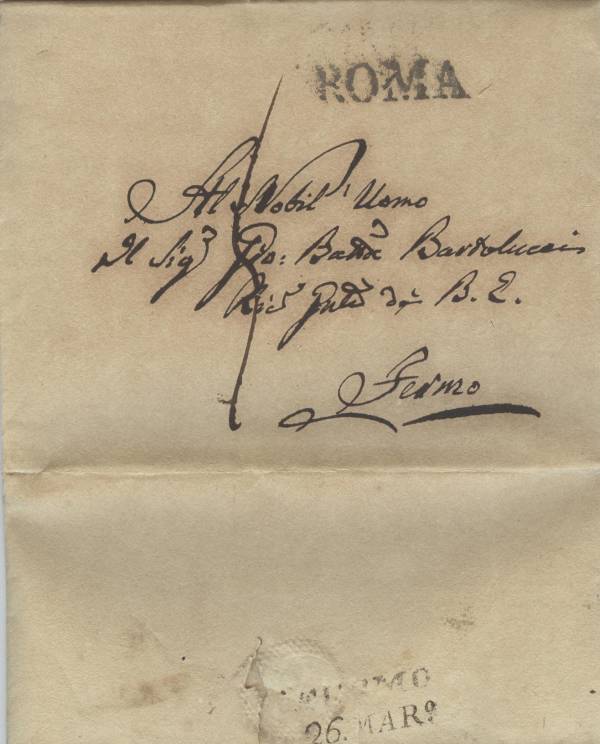 ROMA
Al Nobil' Uomo
Il Sigr Gio: Batta Bartoluccis
B. E.
Fermo
FERMO
26. MARo